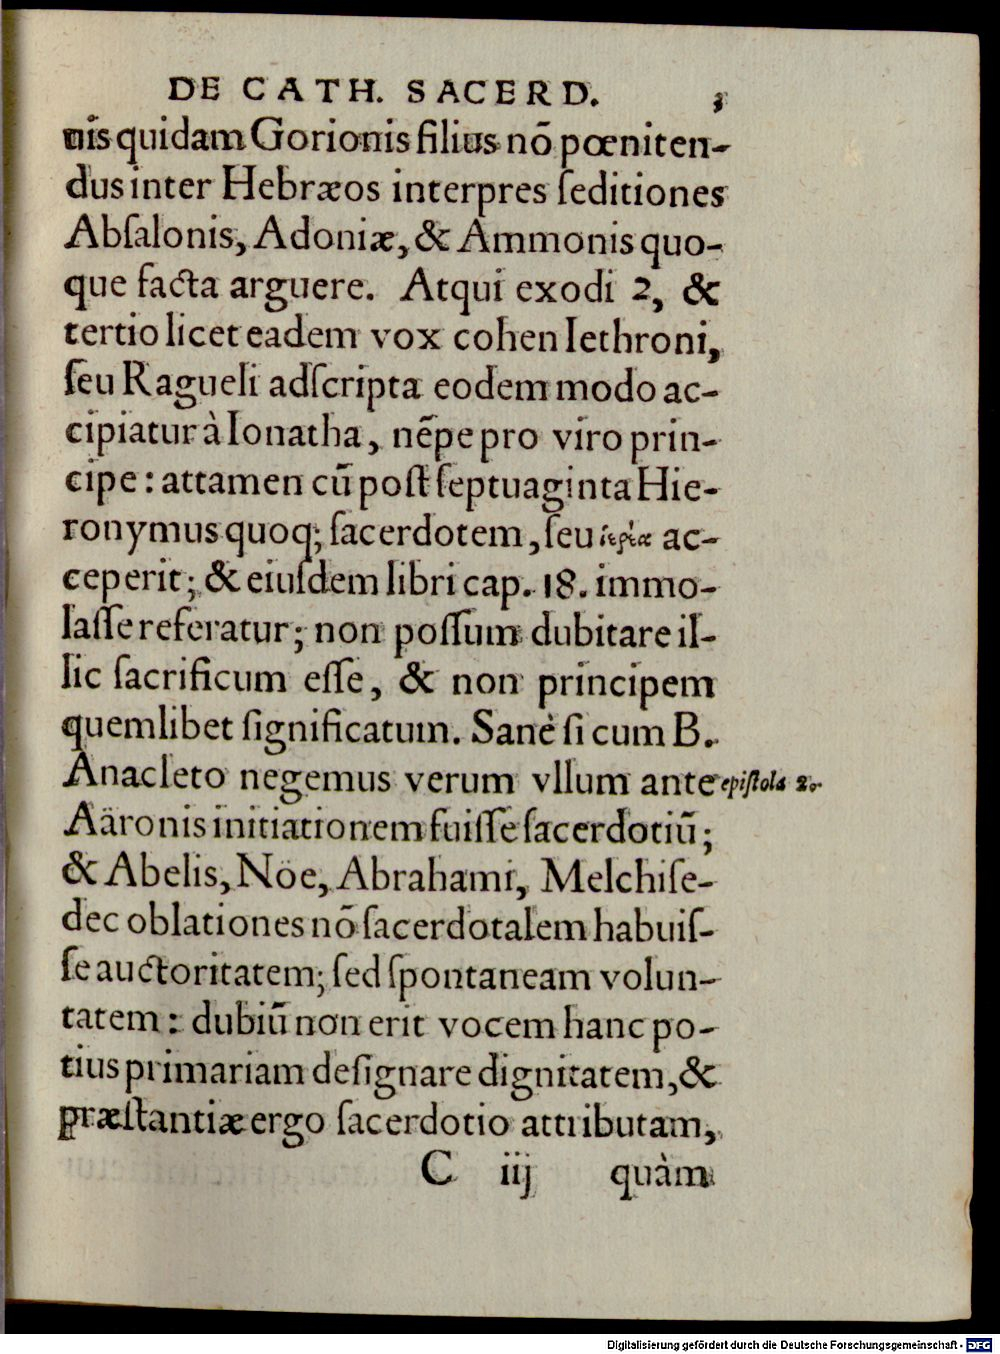 DE CATH. SACERD. 3
nis quidam Gorionis filius nō pœniten-
dus inter Hebræos interpres ſeditiones
Abſalonis, Adoniæ, & Ammonis quo-
que facta arguere. Atqui exodi 2, &
tertio licet eadem vox cohen Iethroni,
ſeu Ragueli adſcripta eodem modo ac-
cipiatur à Ionatha, nēpe pro viro prin-
cipe: attamen cū poſt ſeptuaginta Hie-
ronymus quoq; ſacerdotem, ſeu ἱερέα ac-
ceperit; & eiuſdem libri cap. 18. immo-
laſſe referatur; non poſſum dubitare il-
lic ſacrificum eſſe, & non principem
quemlibet ſignificatum. Sanè ſi cum B.
Anacleto negemus verum vllum ante epiſtola 2.
Aäronis initiationem fuiſſe ſacerdotiū;
& Abelis, Noe, Abrahami, Melchiſe-
dec oblationes nō ſacerdotalem habuiſ-
ſe auctoritatem; ſed ſpontaneam volun-
tatem: dubiū non erit vocem hanc po-
tius primariam deſignare dignitatem, &
præſtantiæ ergo ſacerdotio attributam,
C iij quàm
Digitalisierung gefördert durch die Deutsche Forschungsgemeinschaft - DFG